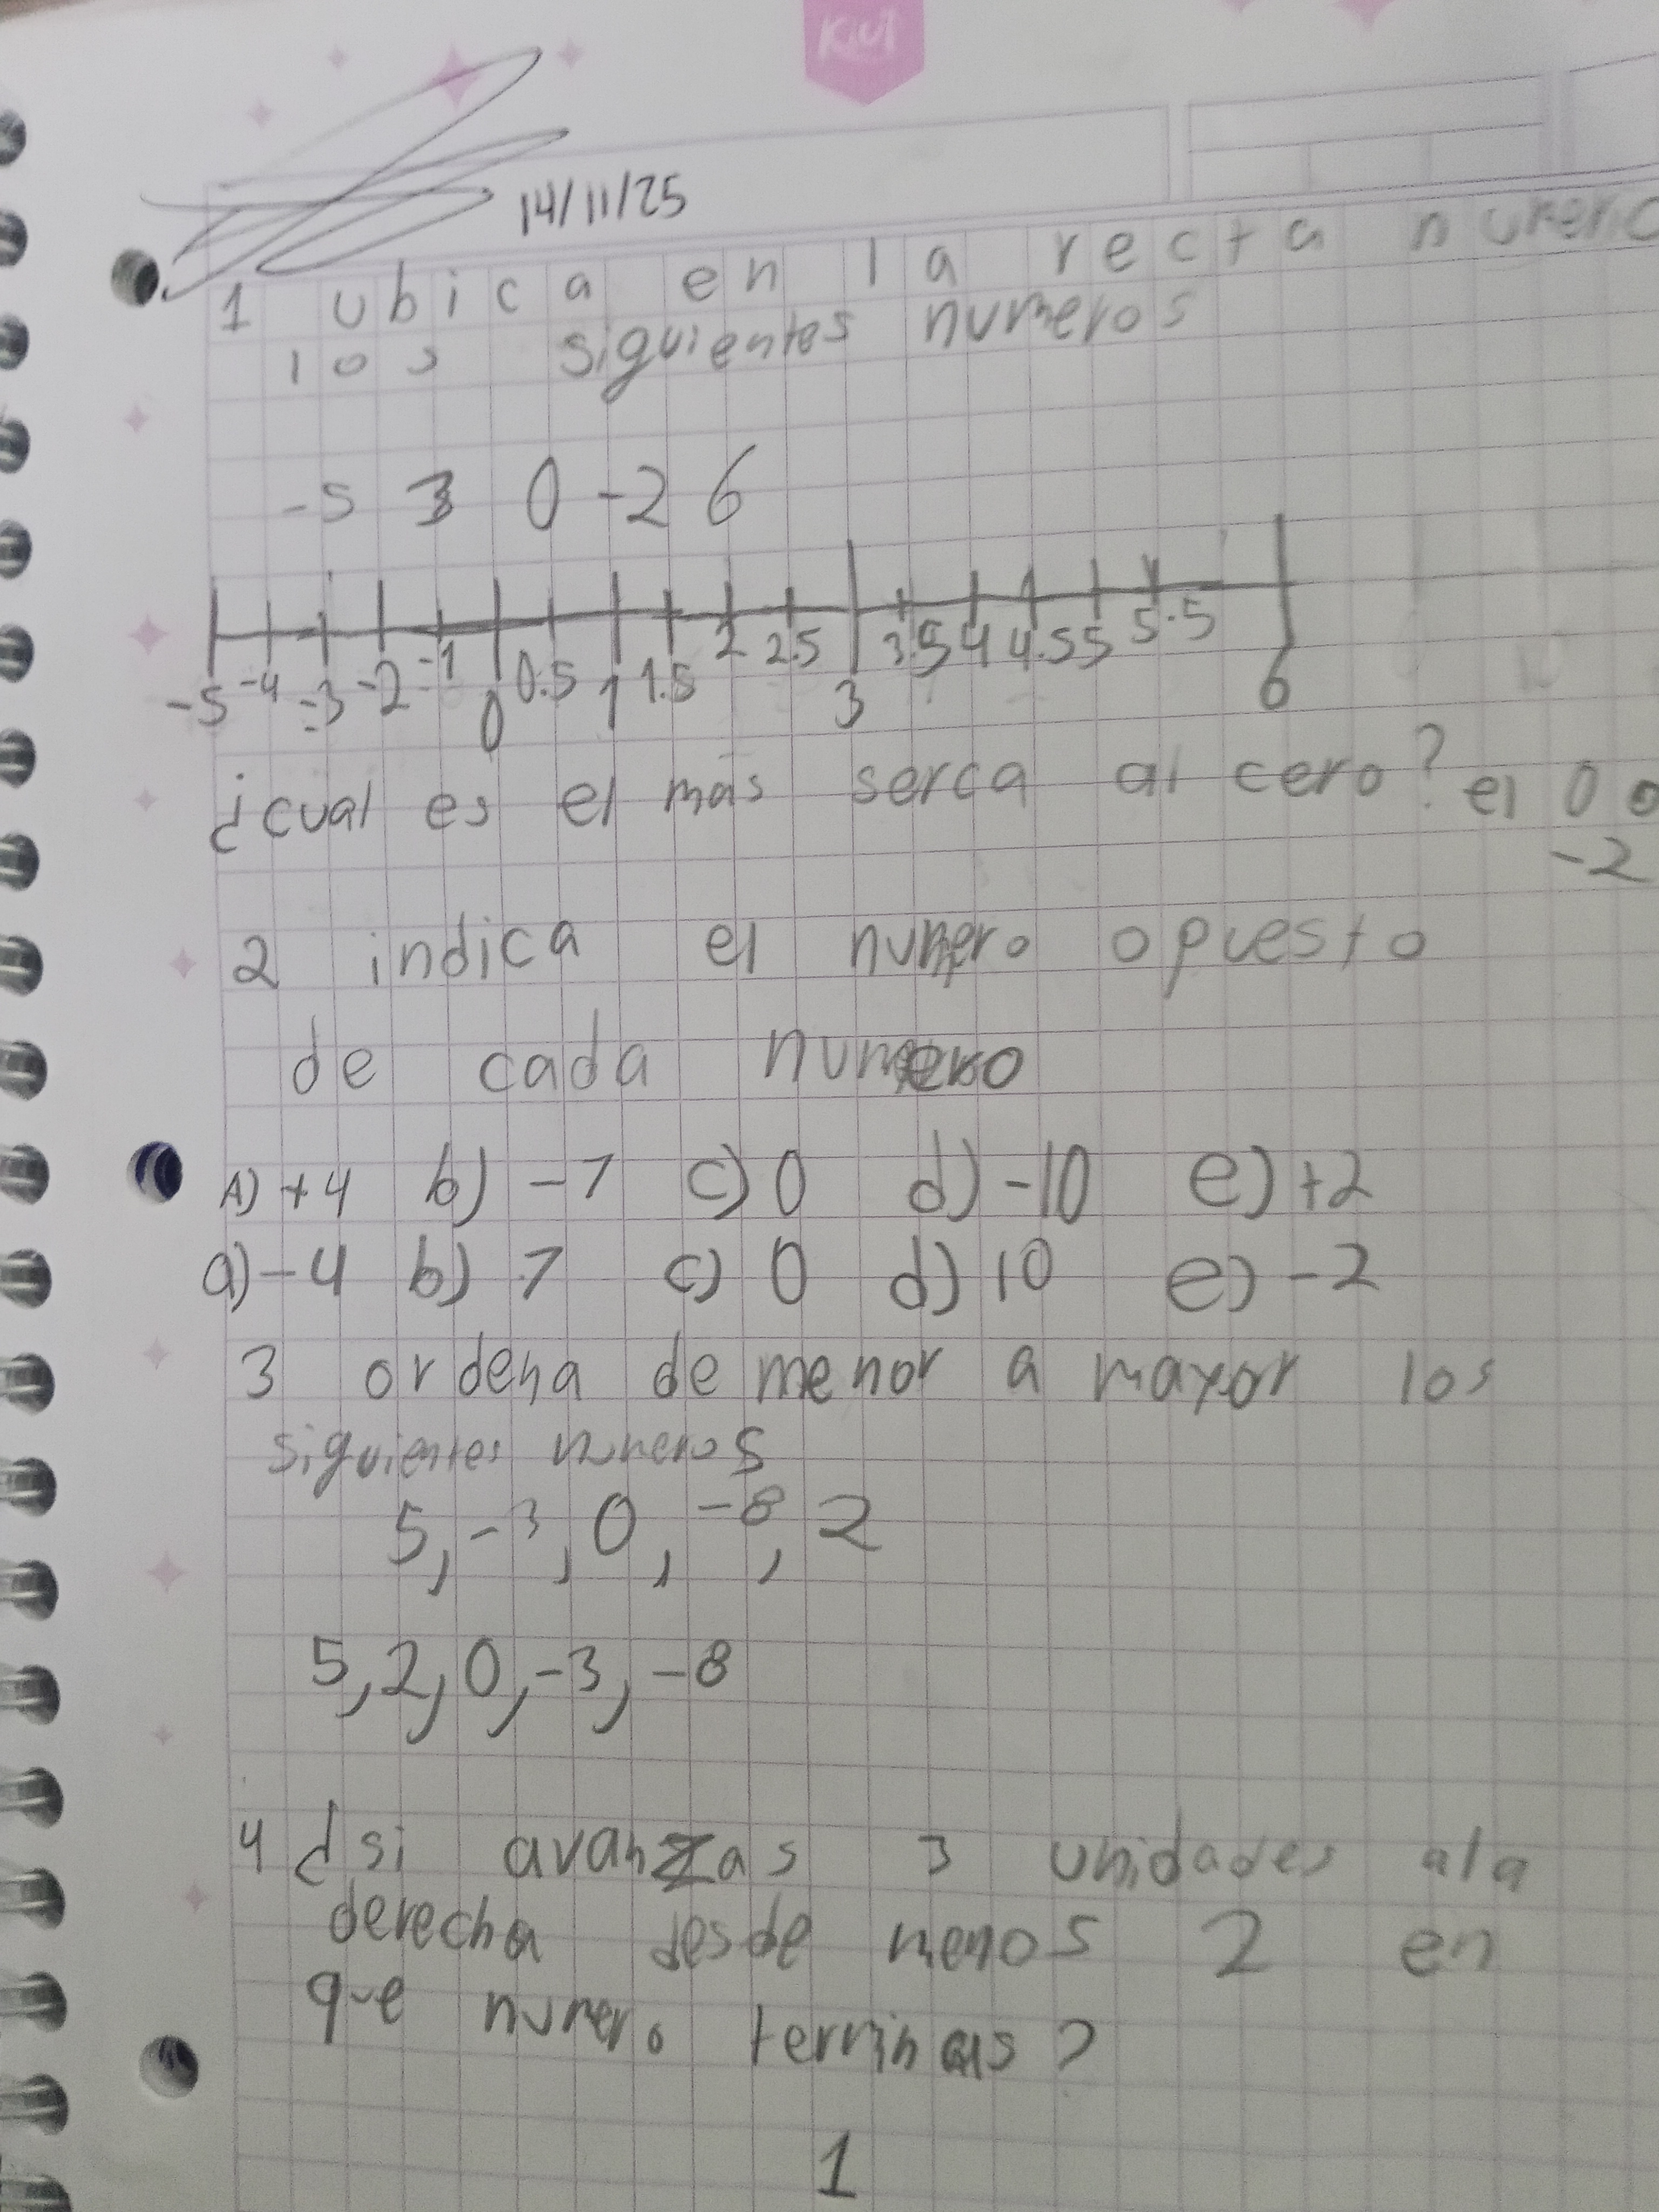 Kiut
14/11/25
1 ubica en la recta
los siguientes numeros
-5 3 0 -2 6
-5 -4 -3 -2 -1 0 0.5 1 1.5 2 2.5 3 3.5 4 4.5 5 5.5 6
¿cual es el mas serca al cero? el 0 o
-2
2 indica el numero opuesto
de cada numero
A) +4 b) -7 c) 0 d) -10 e) +2
a) -4 b) 7 c) 0 d) 10 e) -2
3 ordena de menor a mayor los
siguientes numeros
5, -3, 0, -8, 2
5, 2, 0, -3, -8
4 ¿si avanzas 3 unidades ala
derecha desde menos 2 en
que numero terminas?
1